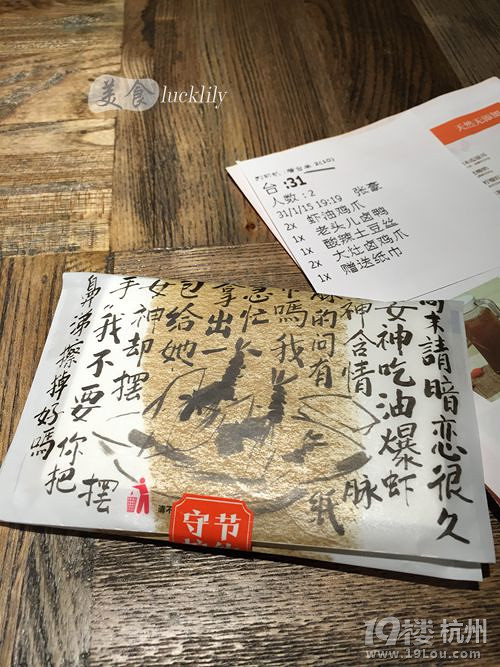 美食 lucklily
台:31
人数：2
31/1/15 19:19 张豪
2x 虾油鸡爪
1x 老头儿卤鸭
1x 酸辣土豆丝
2x 大灶卤鸡爪
1x 赠送纸巾
天然无添加
周末請暗恋很久
女神吃油爆虾
神含情脉
的问有纸
嗎我
急忙
拿出一
包给她
女神却摆一摆
手我不要你把
鼻涕擦掉好嗎
守节
19楼 杭州
www.19lou.com